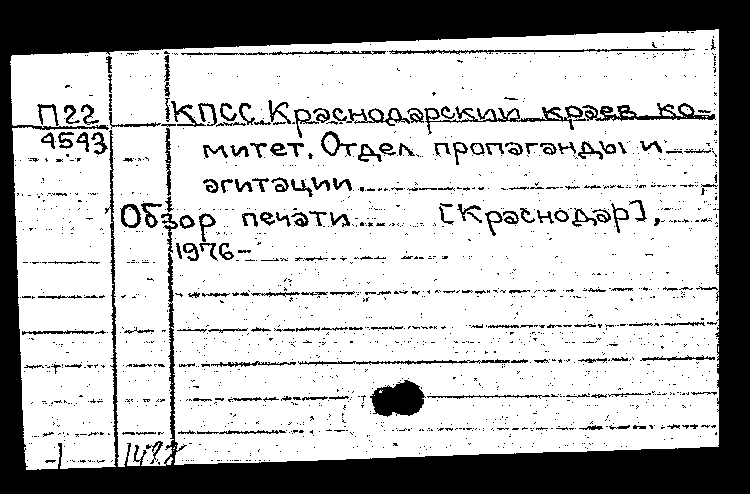 П22 КПСС. Краснодарский краев. ко-
4543 митет. Отдел пропаганды и
агитации.
Обзор печати... [Краснодар],
1976-